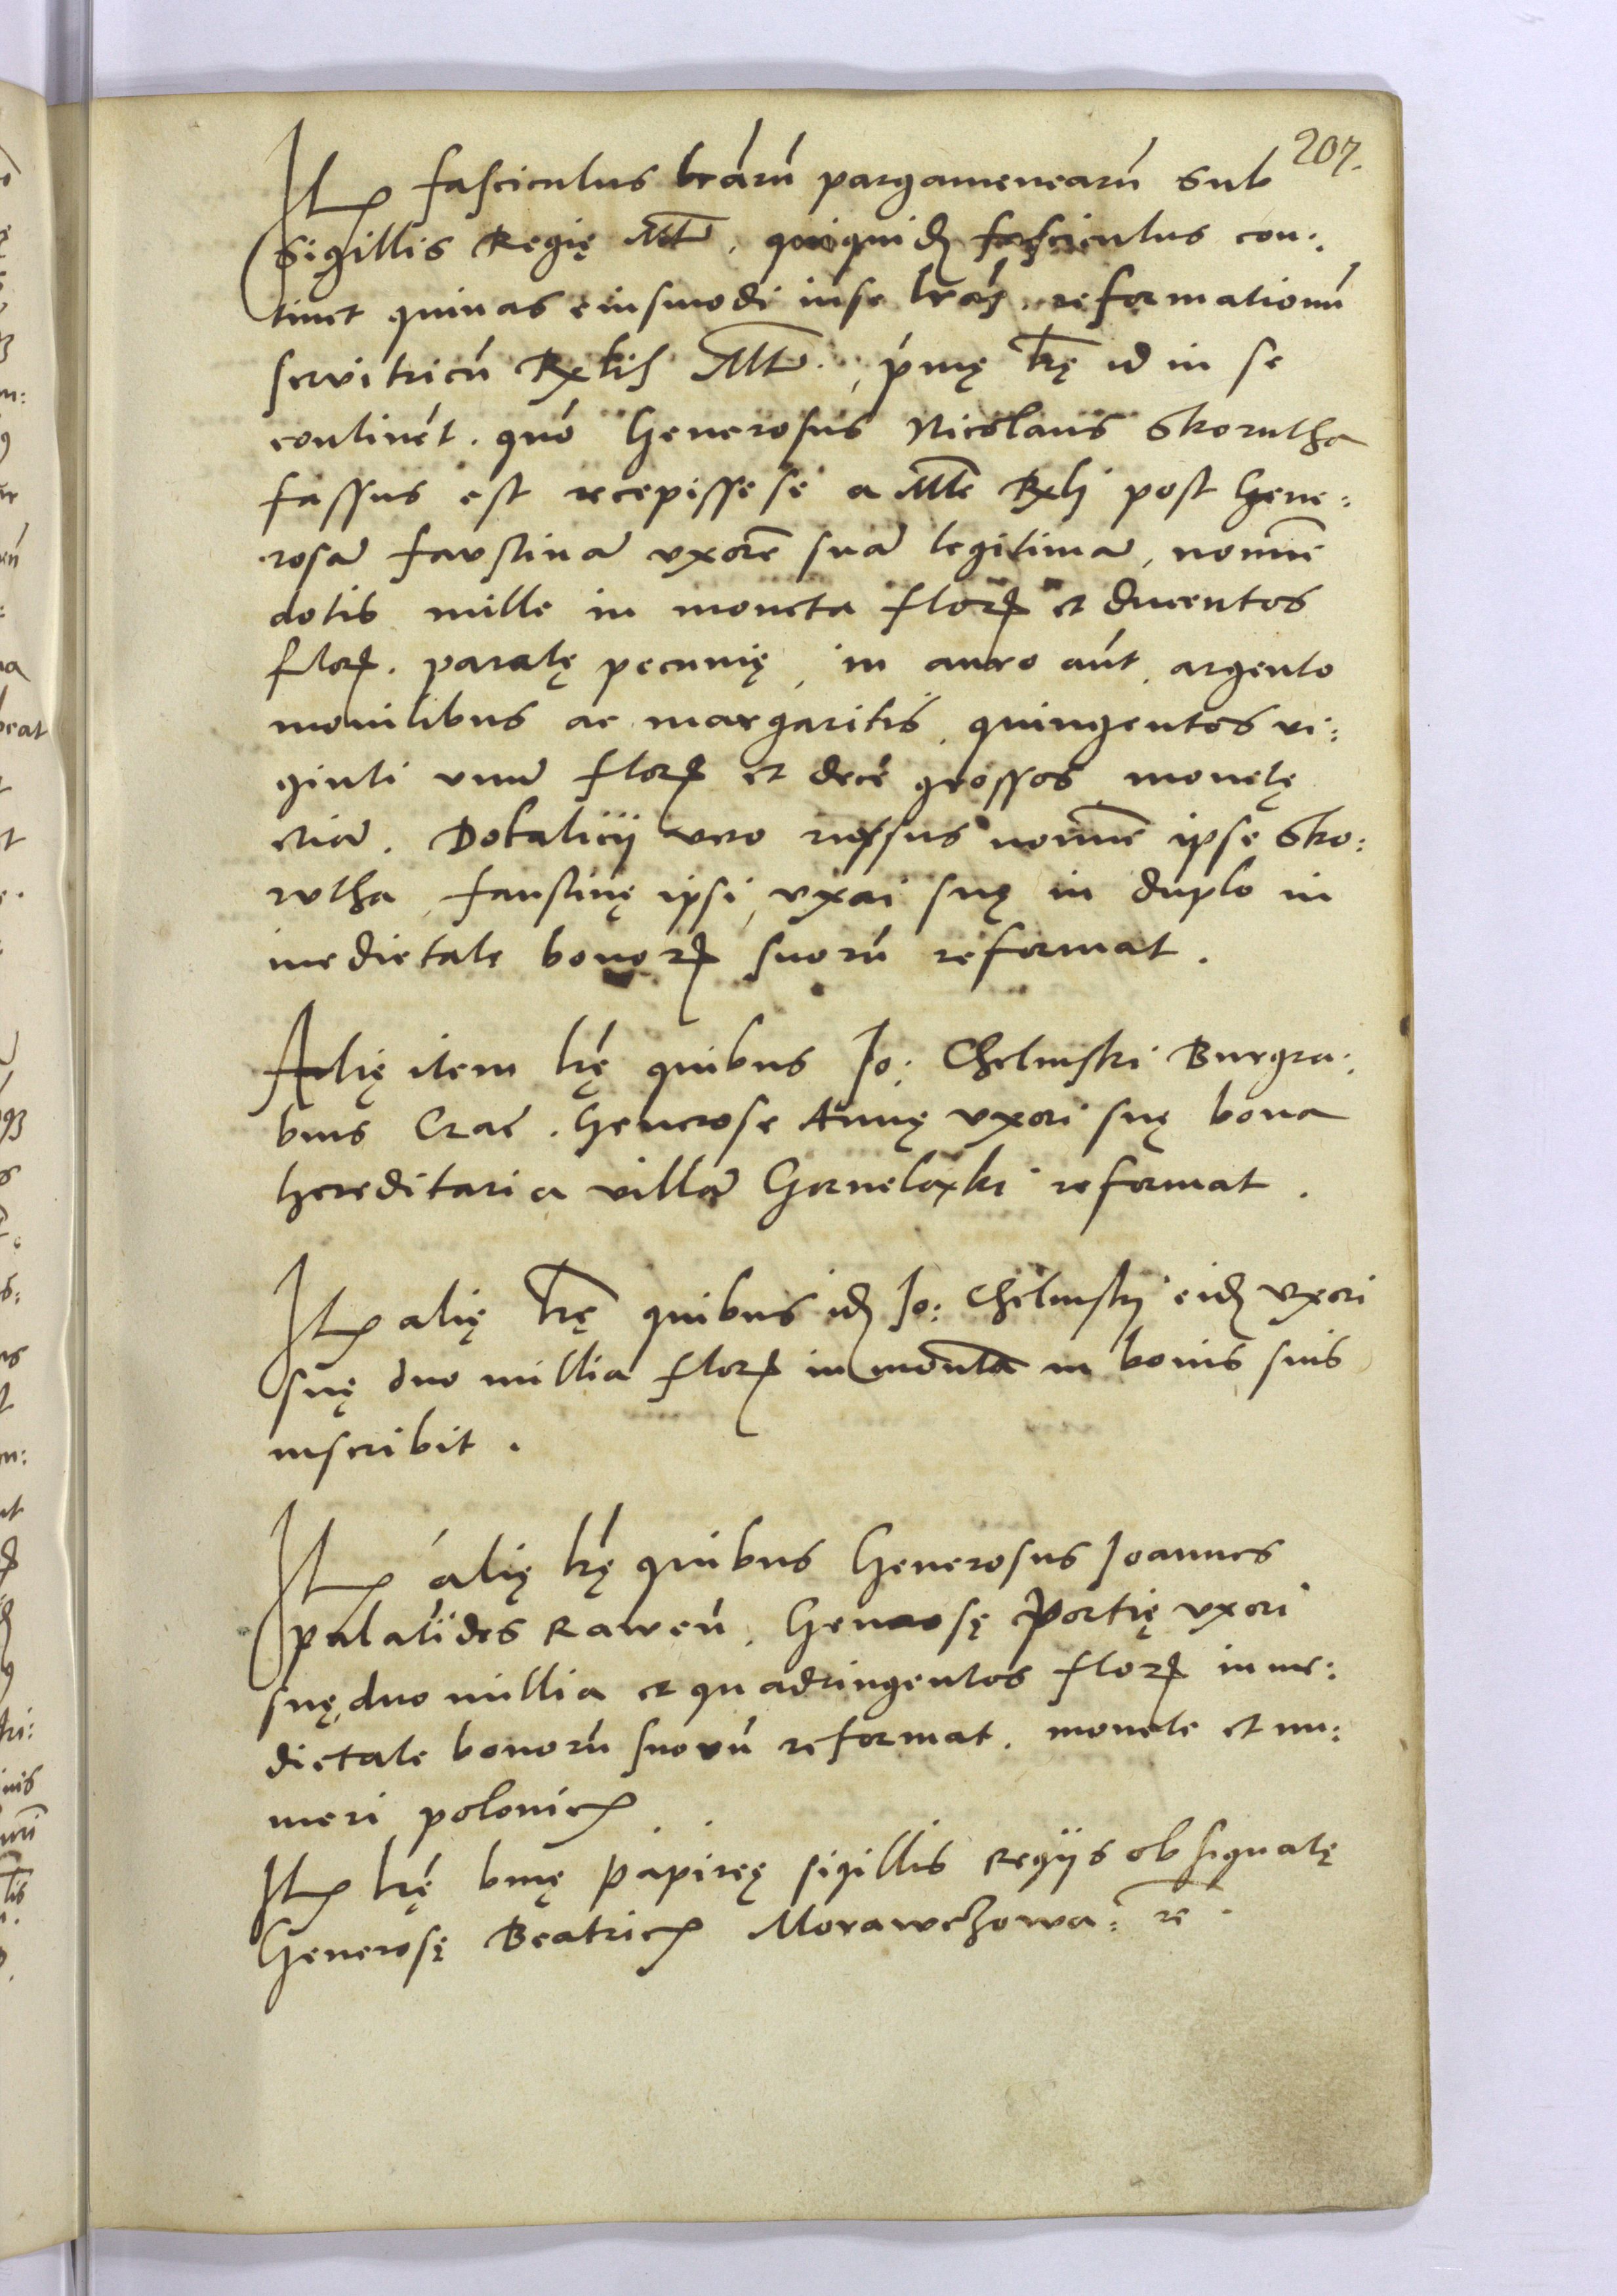 207.
Itē fasciculus lrārū pargamenearū sub
sigillis Regię Mttis, quiquidē fasciculus con:
tinet quinas eiusmodi in se lrās, reformationū
servitricū Rxlis Mttis, pmę lrę id in se
continēt. quō Generosus Nicolaus Skorutha
fassus est recepisse se a Mtte Rxli post Gene:
rosā faustinā vxorē suā legitimā, nomīe
dotis mille in moneta florꝝ et ducentos
florꝝ. paratę pecunię, in auro aūt, argento
monilibus ac margaritis, quingentos vi:
ginti vnū florꝝ et decē grossos monetę
etiā. Dotalicij vero rursus nomīe ipse Sko:
rutha, faustinę ipsi, vxori suę in duplo in
medietate bonorꝝ suorū reformat.
Alię item lrę quibus Jo: Chelmski Burgra:
bius Crac. Generose Annę vxori suę bona
hereditaria villā Gorne reformat.
Itē alię lrę quibus idē Jo: Chelmskj eidē vxori
suę duo millia florꝝ in monta in bonis suis
inscribit.
Itē alię lrę quibus Generosus Joannes
palatides Raweń, Generosę Portię vxori
suę, duo millia et quadringentos florꝝ in me:
dietate bonorū suorū reformat, monete et nu:
meri polonicę
Itē lrę binę papireę sigillis Regijs obsignatę
Generosę Beatricę Morawczowa: rē.